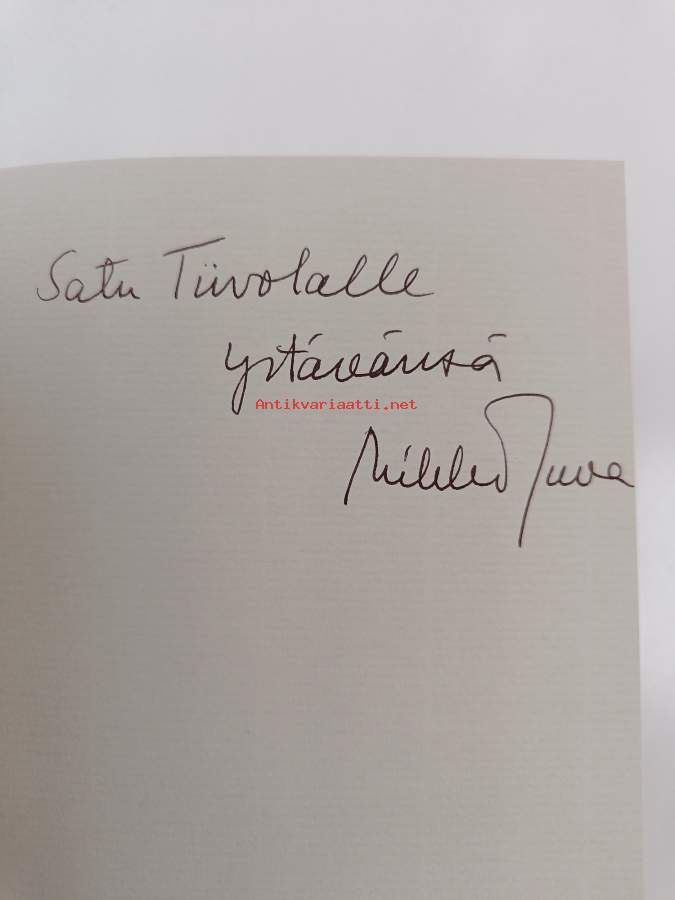 Satu Tiivolalle
ystävänsä
Antikvariaatti.net
Mikko Juva